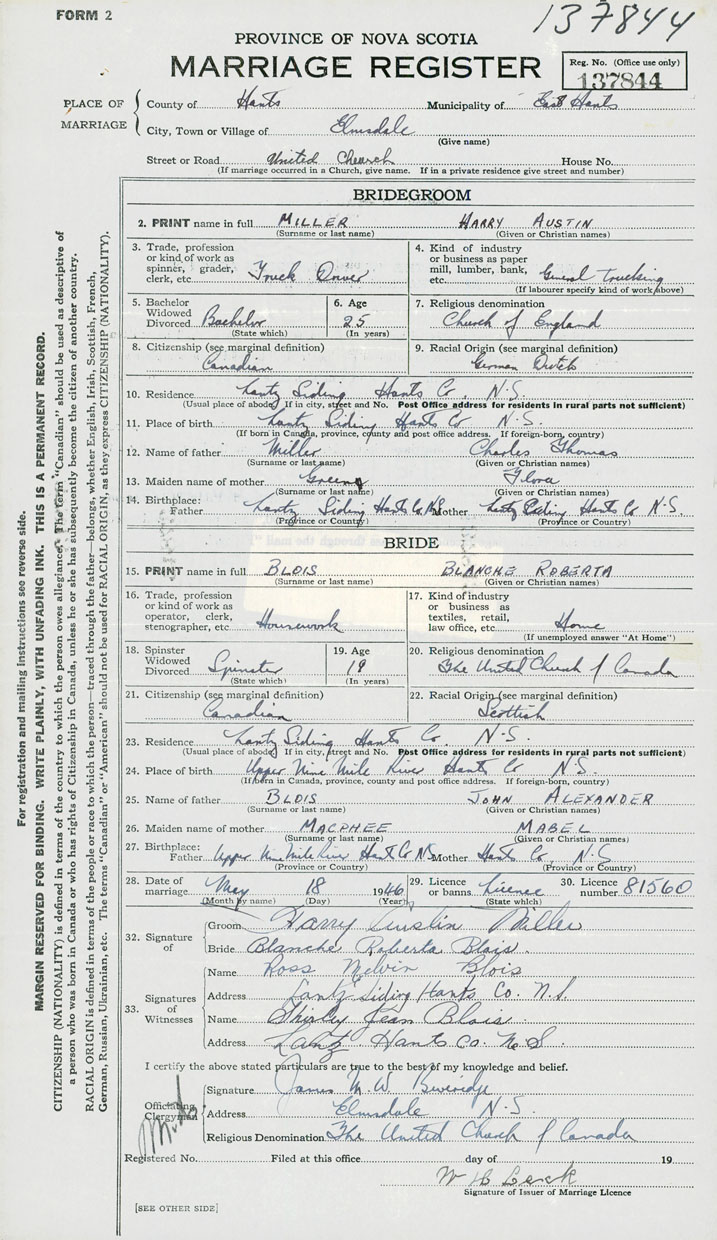 FORM 2
137844
PROVINCE OF NOVA SCOTIA
MARRIAGE REGISTER
Reg. No. (Office use only)
137844
PLACE OF MARRIAGE
County of Hants Municipality of East Hants
City, Town or Village of Elmsdale
(Give name)
Street or Road United Church House No.
(If marriage occurred in a Church, give name. If in a private residence give street and number)
BRIDEGROOM
2. PRINT name in full MILLER HARRY AUSTIN
(Surname or last name) (Given or Christian names)
3. Trade, profession or kind of work as spinner, grader, clerk, etc. Truck Driver
4. Kind of industry or business as paper mill, lumber, bank, etc. General trucking
(If labourer specify kind of work above)
5. Bachelor Widowed Divorced Bachelor
(State which)
6. Age 25
(In years)
7. Religious denomination
Church of England
8. Citizenship (see marginal definition)
Canadian
9. Racial Origin (see marginal definition)
German Dutch
10. Residence Lantz Siding Hants Co. N.S.
(Usual place of abode. If in city, street and No. Post Office address for residents in rural parts not sufficient)
11. Place of birth Lantz Siding Hants Co N.S.
(If born in Canada, province, county and post office address. If foreign-born, country)
12. Name of father Miller Charles Thomas
(Surname or last name) (Given or Christian names)
13. Maiden name of mother Greene Flora
(Surname or last name) (Given or Christian names)
14. Birthplace: Father Lantz Siding Hants Co N.S. Mother Lantz Siding Hants Co N.S.
(Province or Country) (Province or Country)
BRIDE
15. PRINT name in full BLOIS BLANCHE ROBERTA
(Surname or last name) (Given or Christian names)
16. Trade, profession or kind of work as operator, clerk, stenographer, etc. Housework
17. Kind of industry or business as textiles, retail, law office, etc. Home
(If unemployed answer "At Home")
18. Spinster Widowed Divorced Spinster
(State which)
19. Age 19
(In years)
20. Religious denomination
The United Church of Canada
21. Citizenship (see marginal definition)
Canadian
22. Racial Origin (see marginal definition)
Scottish
23. Residence Lantz Siding Hants Co. N.S.
(Usual place of abode. If in city, street and No. Post Office address for residents in rural parts not sufficient)
24. Place of birth Upper Nine Mile River Hants Co N.S.
(If born in Canada, province, county and post office address. If foreign-born, country)
25. Name of father BLOIS JOHN ALEXANDER
(Surname or last name) (Given or Christian names)
26. Maiden name of mother MACPHEE MABEL
(Surname or last name) (Given or Christian names)
27. Birthplace: Father Upper Nine Mile River Hants Co N.S. Mother Hants Co. N.S.
(Province or Country) (Province or Country)
28. Date of marriage May 18 1946 29. Licence or banns License 30. Licence number 81560
(Month by name) (Day) (Year) (State which)
32. Signature of
Groom Harry Austin Miller
Bride Blanche Roberta Blois.
33. Signatures of Witnesses
Name Ross Melvin Blois
Address Lantz Siding Hants Co. N.S.
Name Shirley Jean Blois.
Address Lantz Hants Co. N.S.
I certify the above stated particulars are true to the best of my knowledge and belief.
Officiating Clergyman
Signature James M. W. Beveridge
Address Elmsdale N.S.
Religious Denomination The United Church of Canada
Registered No. Filed at this office day of 19
Signature of Issuer of Marriage Licence
[SEE OTHER SIDE]
For registration and mailing instructions see reverse side.
MARGIN RESERVED FOR BINDING. WRITE PLAINLY, WITH UNFADING INK. THIS IS A PERMANENT RECORD.
CITIZENSHIP (NATIONALITY) is defined in terms of the country to which the person owes allegiance. The term "Canadian" should be used as descriptive of
a person who was born in Canada or who has rights of Citizenship in Canada, unless he or she has subsequently become the citizen of another country.
RACIAL ORIGIN is defined in terms of the people or race to which the person—traced through the father—belongs, whether English, Irish, Scottish, French,
German, Russian, Ukrainian, etc. The terms "Canadian" or "American" should not be used for RACIAL ORIGIN, as they express CITIZENSHIP (NATIONALITY).